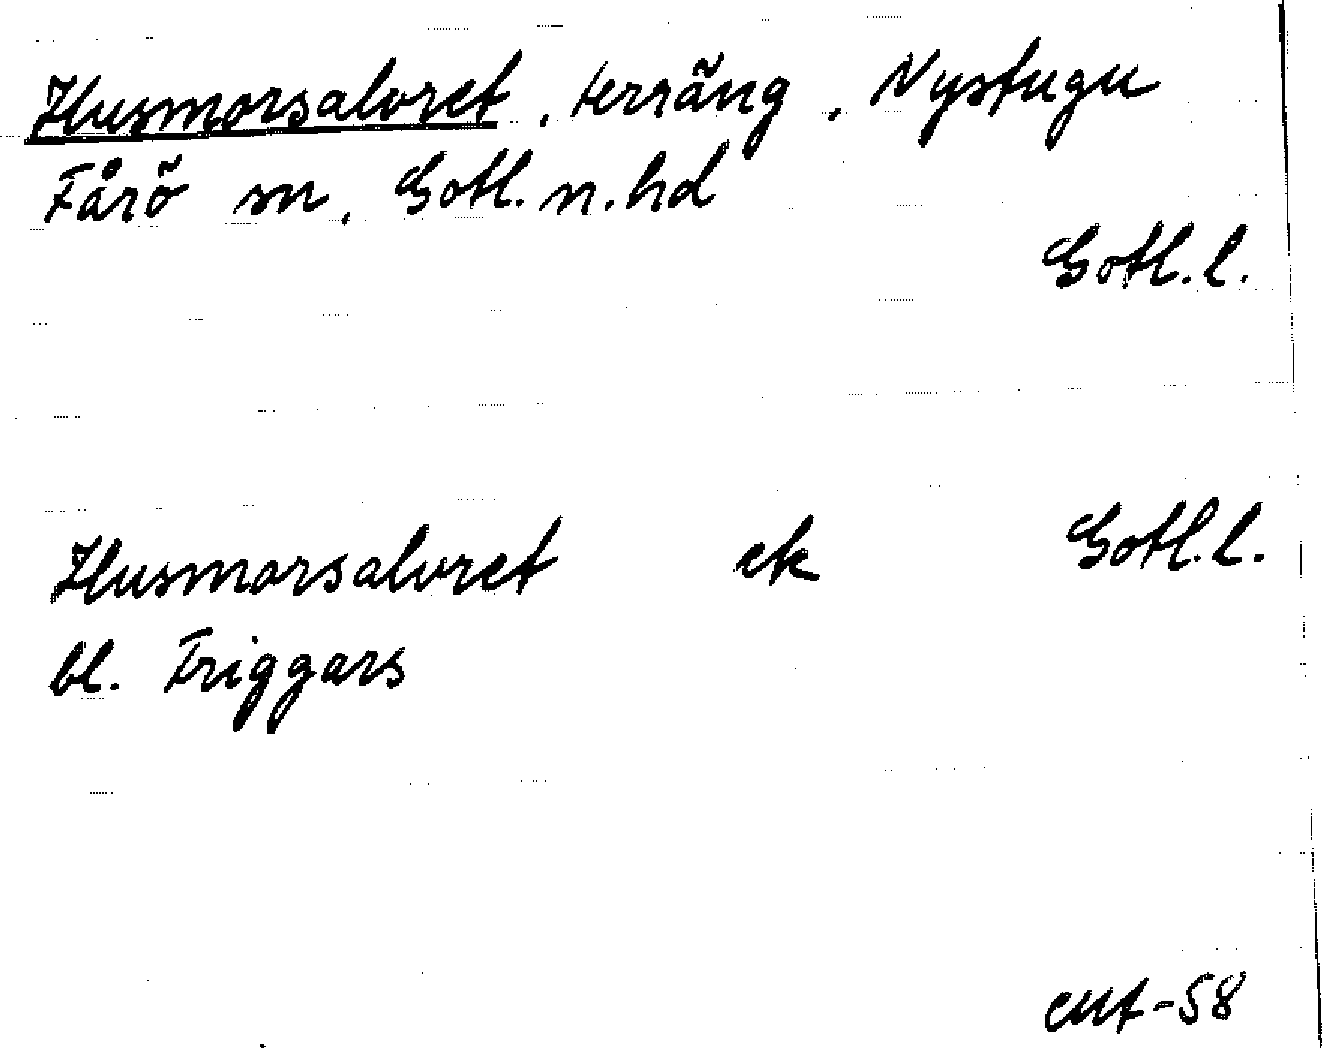 Husmorsalvret, terräng, Nystugu
Fårö sn, Gotl. n. hd
Gotl. l.
Husmorsalvret ek Gotl. l.
bl. Friggars
-58